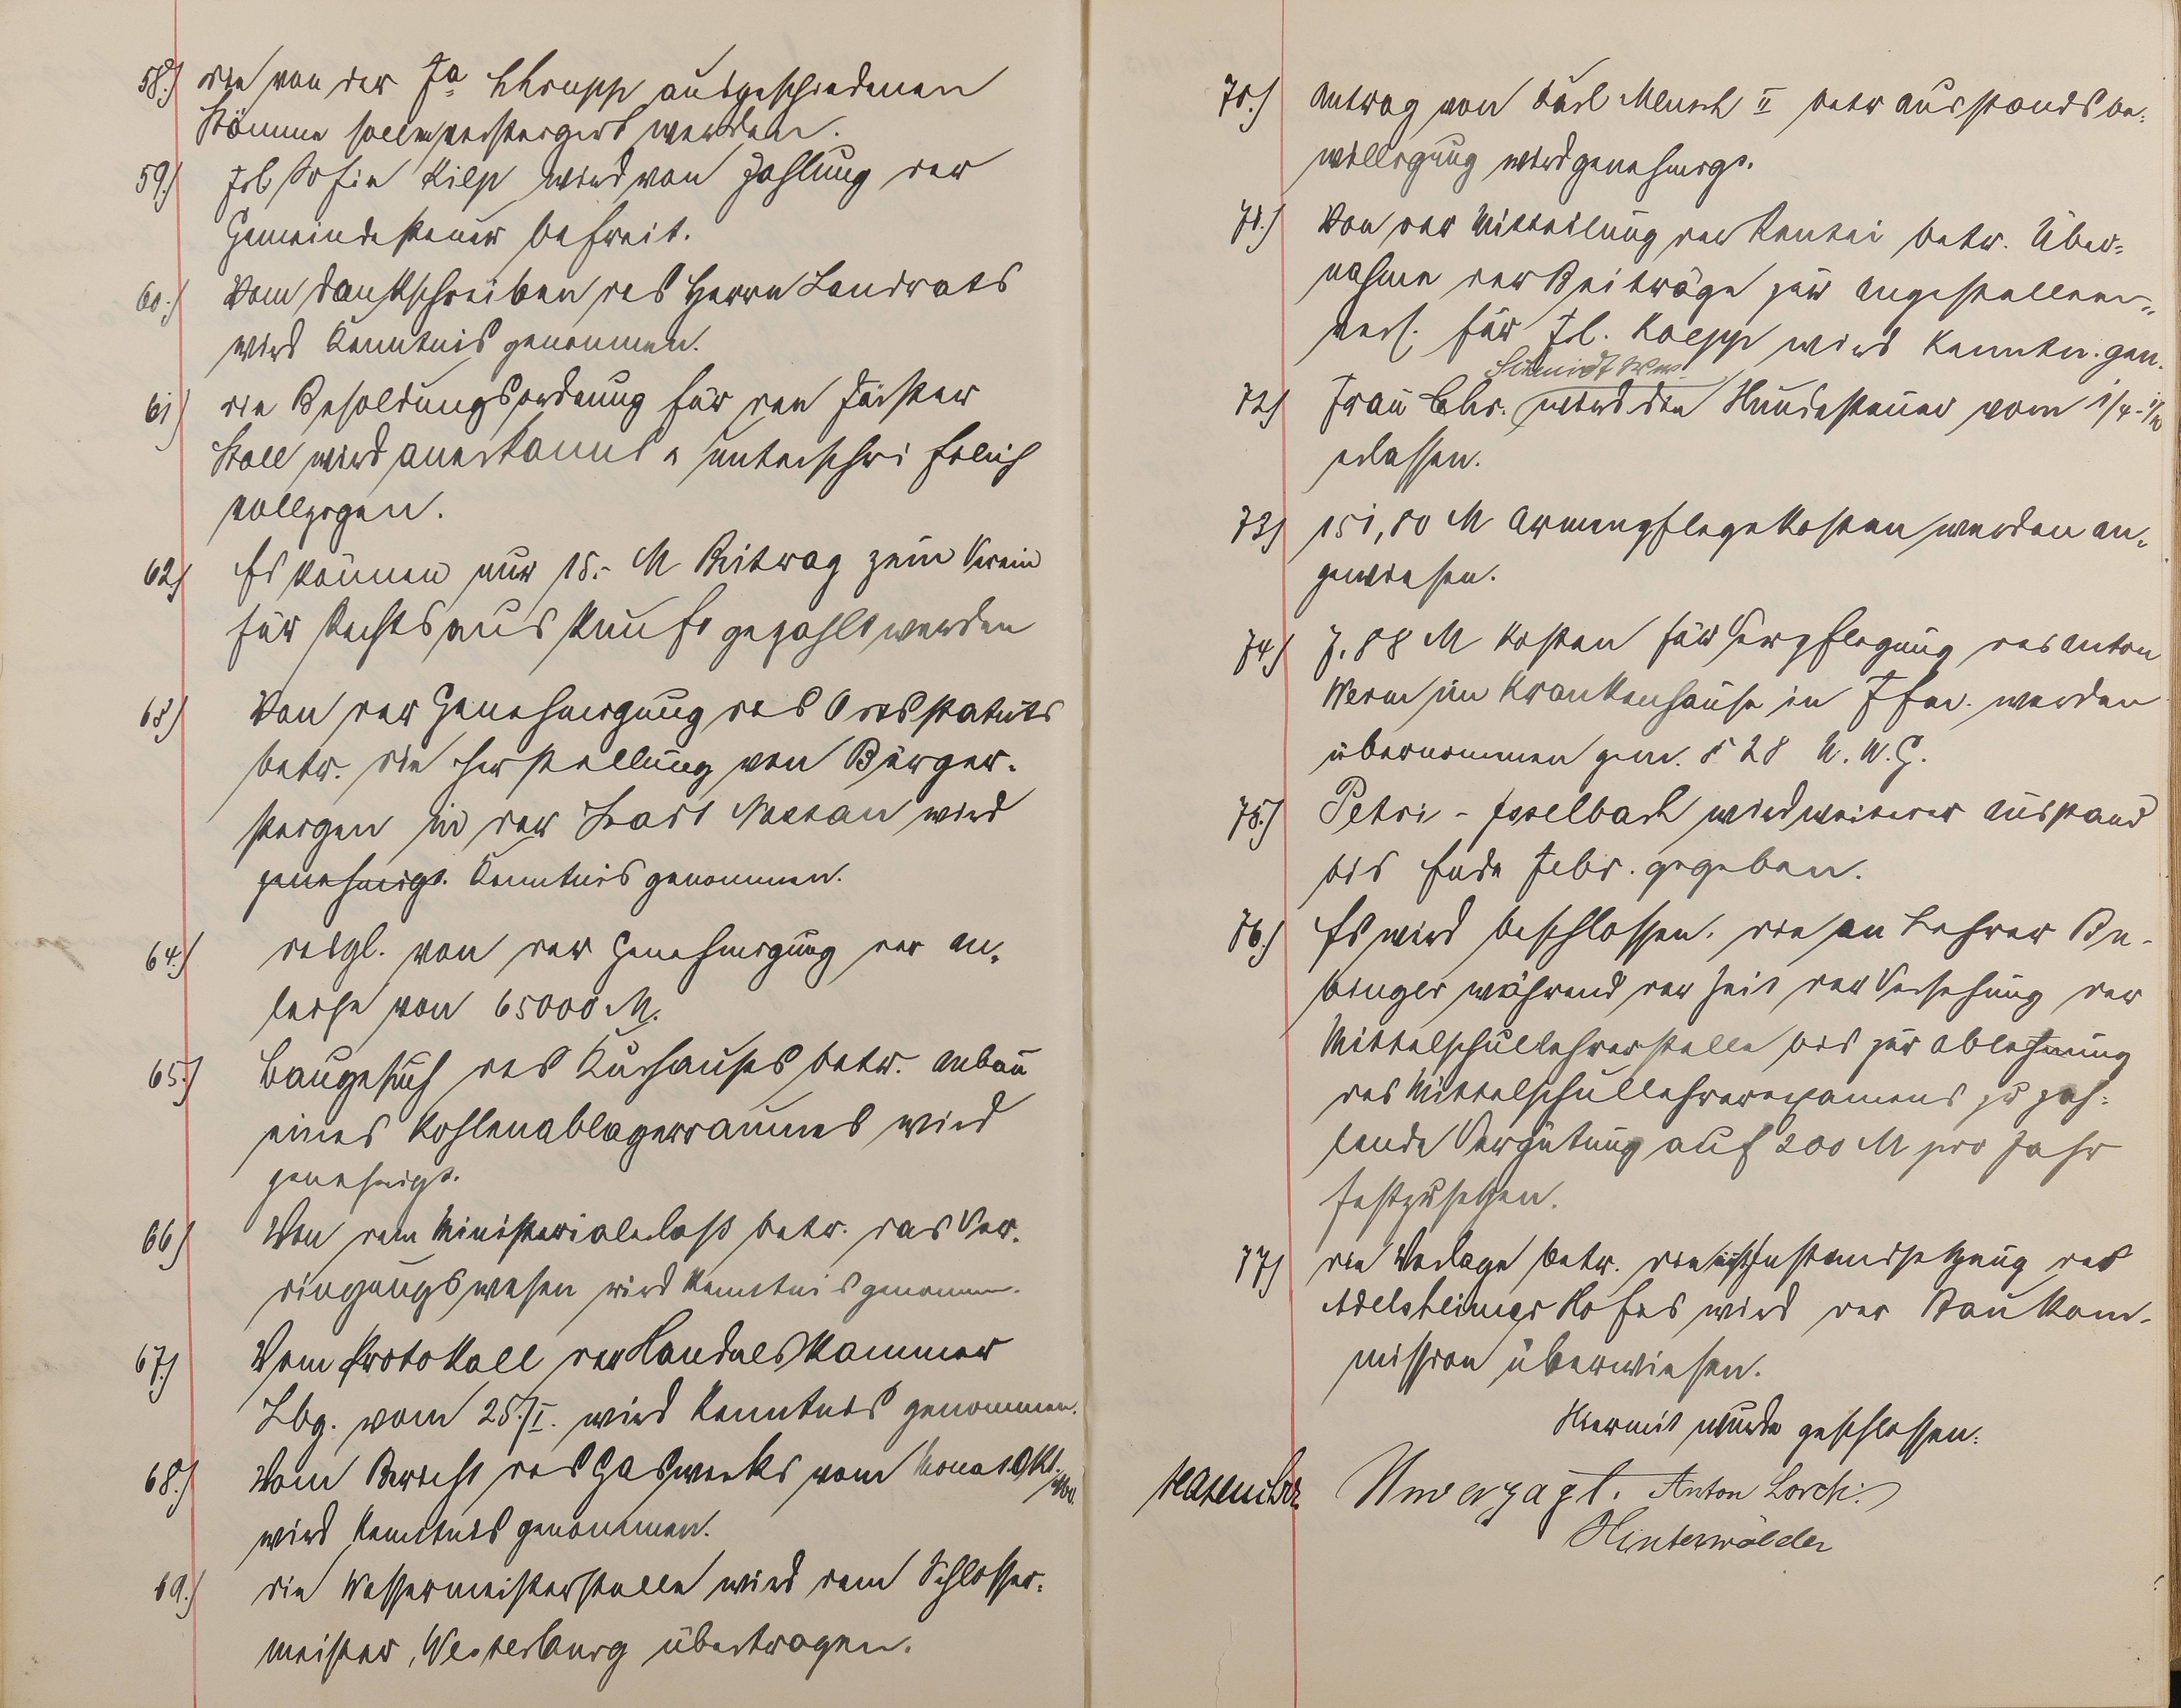 58.) die von der Fa Krupp ausgeschiedenen
Stämme sollen versteigert werden.
59.) Frl. Sofie Kilp wird von Zahlung der
Gemeindesteuer befreit.
60.) Vom Dankschreiben des Herrn Landrats
wird Kenntnis genommen.
61) die Besoldungsordnung für den Förster
Stoll wird anerkannt u. unterschriftlich
vollzogen.
62) Es können nur 15.- M Beitrag zum Verein
für Rechtsauskunft gezahlt werden
63) Von der Genehmigung des Ortsstatuts
betr. die Herstellung von Bürger-
steigen in der Stadt Nassau wird
genehmigt. Kenntnis genommen.
64.) desgl. von der Genehmigung der An-
leihe von 65000 M.
65.) Baugesuch des Kurhauses betr. Anbau
eines Kohlenablagerraumes wird
genehmigt.
66) Von dem Ministerialerlaß betr. das Ver-
dingungswesen wird Kenntnis genommen.
67.) Vom Protokoll der Handelskammer
Lbg. vom 25./I. wird Kenntnis genommen.
68.) Vom Bericht des Gaswerks vom Monat Okt./Nov.
wird Kenntnis genommen.
69.) die Wassermeisterstelle wird dem Schlosser-
meister, Westerburg übertragen.
70.) Antrag von Karl Mensch II betr Ausstandsbe-
willigung wird genehmigt.
71.) Von der Mitteilung der Rentei betr. Über-
nahme der Beiträge zur Angestellten-
vers. für Frl. Koepp wird Kenntn. gen.
Schmidt Ww.
72) Frau Chr. wird die Hundesteuer vom 1/4-1/10
erlassen.
73) 151,80 M Armenpflegekosten werden an-
gewiesen.
74) 7.88 M Kosten für Verpflegung des Anton
Werm im Krankenhause in Ffm. werden
übernommen gem. § 28 U.W.G.
75.) Petri - Isselbach wird weiterer Ausstand
bis Ende Febr. gegeben.
76.) Es wird beschlossen, die an Lehrer Bu-
binger während der Zeit der Versehung der
Mittelschullehrerstelle bis zur Ablehnung
des Mittelschullehrerexamens zu zah-
lende Vergütung auf 200 M pro Jahr
festzusetzen.
77) die Vorlage betr. die Instandsetzung des
Adelsheimer Hofes wird der Baukom-
mission überwiesen.
Hiermit wurde geschlossen.
Hasenclever Unverzagt. Anton Lorch.
Hinterwälder